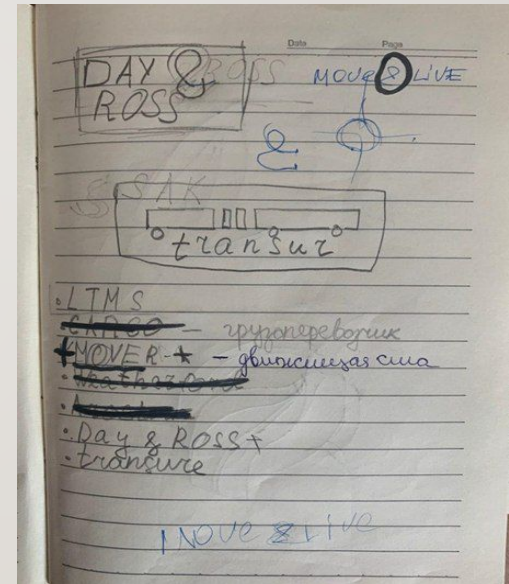 Date Page
DAY & ROSS
ROSS
MOVE & LIVE
&
SAK
transur
• LTMS
CARGO – грузоперевозчик
+ MOVER + – движущая сила
• Day & ROSS +
• transure
MOVE & LIVE